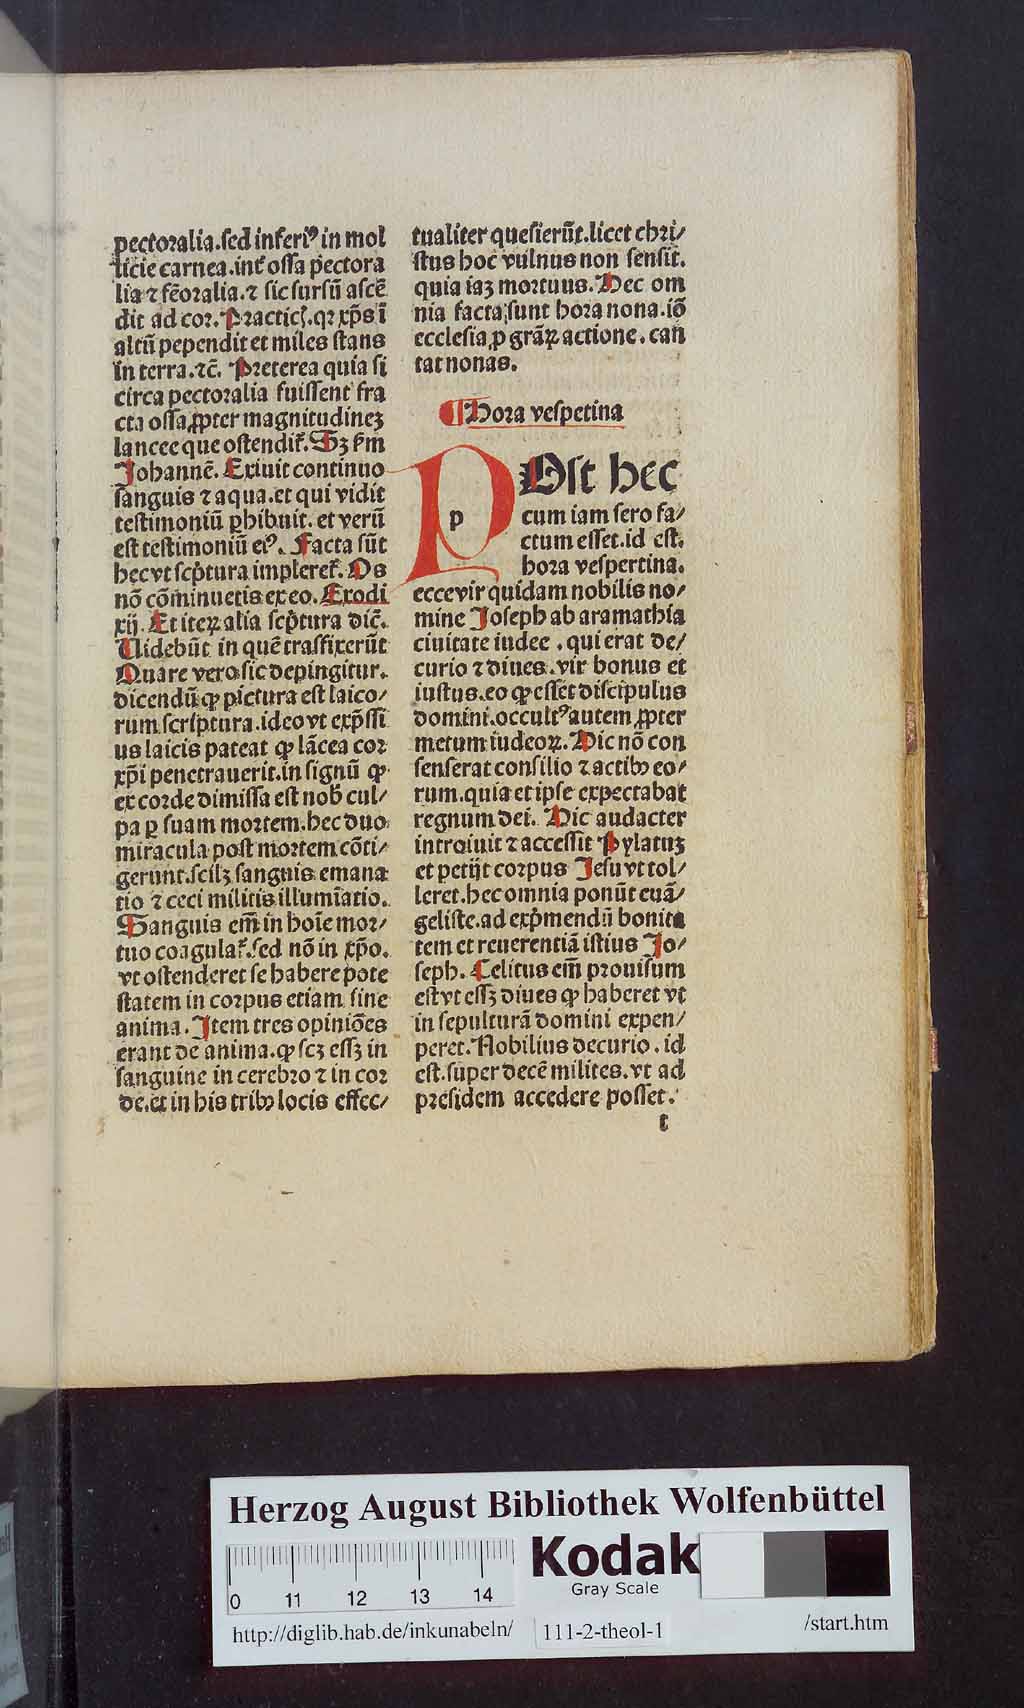 pectoralia.sed inferiꝰ in mol
licie carnea.int̄ ossa pectora
lia ⁊ fēoralia.⁊ sic sursū ascē
dit ad cor. Practicꝭ.qꝛ xp̄s ī
altū pependit et miles stans
in terra.⁊c̄. Preterea quia si
circa pectoralia fuissent fra
cta ossa ꝓpter magnitudineꝫ
lancee que ostendit̄. Sꝫ km̄
Johannē. Exiuit continuo
sanguis ⁊ aqua.et qui vidit
testimoniū ꝑhibuit. et verū
est testimoniū eiꝰ. Facta sūt
hec vt scp̄tura impleret̄. Os
nō cōminuetis ex eo. Exodi
xij. Et iteꝝ alia scp̄tura dic̄.
Uidebūt in quē trāsfixerūt
Quare vero sic depingitur.
dicendū ꝙ pictura est laico/
rum scriptura.ideo vt exp̄ssi
us laicis pateat ꝙ lācea cor
xp̄i penetrauerit.in signū ꝙ
ex corde dimissa est nob̄ cul/
pa ꝑ suam mortem.hec duo
miracula post mortem cōti/
gerunt.scilꝫ sanguis emana
tio ⁊ ceci militis illumīatio.
Sanguis em̄ in hoīe mor/
tuo coagulat̄.sed nō in xp̄o.
vt ostenderet se habere pote
statem in corpus etiam sine
anima. Item tres opiniōes
erant de anima.ꝙ scꝫ essꝫ in
sanguine in cerebro ⁊ in cor
de.et in his tribꝰ locis effec/
tualiter quesierūt.licet chri/
stus hoc vulnus non sensit.
quia iaꝫ mortuus. Hec om
nia facta sunt hora nona.iō
ecclesia ꝓ grāꝝ actione. can
tat nonas.
¶ Hora vespetina
POst hec
p
cum iam sero fa/
ctum esset.id est.
hora vespertina.
ecce vir quidam nobilis no/
mine Joseph ab aramathia
ciuitate iudee . qui erat de/
curio ⁊ diues.vir bonus et
iustus.eo ꝙ esset discipulus
domini.occultꝰ autem ꝓpter
metum iudeoꝝ. Hic nō con
senserat consilio ⁊ actibꝰ eo/
rum.quia et ipse expectabat
regnum dei. Hic audacter
introiuit ⁊ accessit Pylatuꝫ
et petijt corpus Jesu vt tol/
leret.hec omnia ponūt euā/
geliste.ad exp̄mendū bonita
tem et reuerentiā istius Jo/
seph. Celitus em̄ prouisum
est vt essꝫ diues ꝙ haberet vt
in sepulturā domini expen/
peret. Nobilius decurio . id
est.super decē milites.vt ad
presidem accedere posset.
t
Herzog August Bibliothek Wolfenbüttel
0 11 12 13 14
Kodak
Gray Scale
http://diglib.hab.de/inkunabeln/ 111-2-theol-1 /start.htm